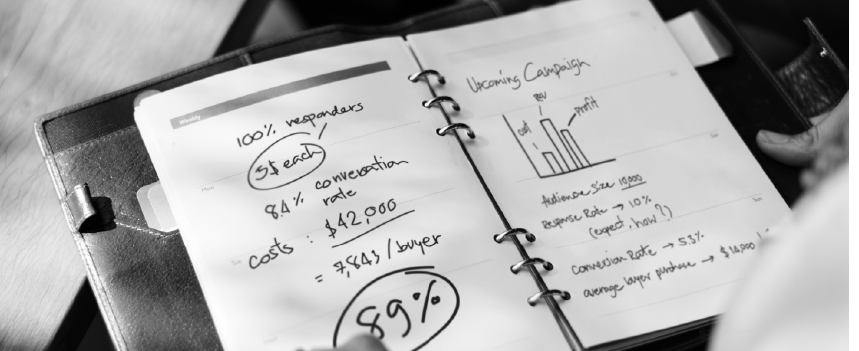 Weekly
100% responders
5$ each
8.4% conversation
rate
costs : $42,000
= 7,843 / buyer
89%
Upcoming Campaign
cost
Rev
Profit
Audience Size 10,000
Response Rate → 10%
(expect, how?)
Conversion Rate → 5.3%
average buyer purchase → $14,000